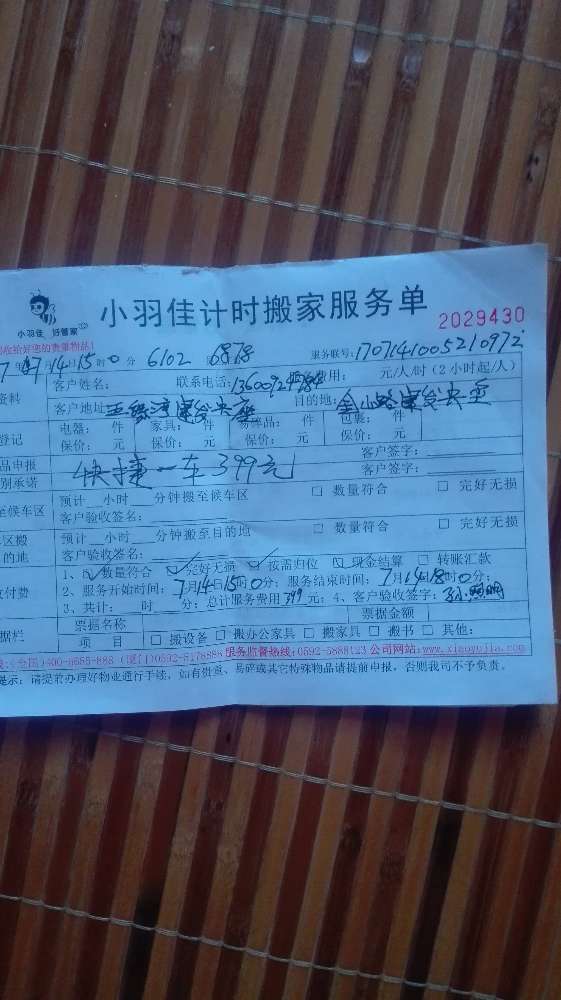 小羽佳 好管家
小羽佳计时搬家服务单
2029430
收拾好您的贵重物品!
7月14日15时0分 6102 6878 服务联号:1707141005210972
客户姓名: 联系电话: 费用: 元/人/时(2小时起/人)
客户地址: 目的地:
电器: 件 家具: 件 易碎品: 件 包裹: 件
保价: 元 保价: 元 保价: 元 保价: 元
快捷一车399元 客户签字:
客户签字:
预计__小时__分钟搬至候车区 □ 数量符合 □ 完好无损
客户验收签名:
预计__小时__分钟搬至目的地 □ 数量符合 □ 完好无损
客户验收签名:
1、☑数量符合 ☑完好无损 ☑按需归位 ☑现金结算 □ 转账汇款
2、服务开始时间:7月14日15时0分; 服务结束时间:7月14日18时0分;
3、共计: 时 分; 总计服务费用399元; 4、客户验收签字:
票据名称 票据金额
项 目 □ 搬设备 □ 搬办公家具 □ 搬家具 □ 搬书 □ 其他:
(全国)400-6685-888 (厦门)0592-8178888 服务监督热线:0592-5888123 公司网站:www.xiaoyujia.com
提示: 请提前办理好物业通行手续, 如有贵重、易碎或其它特殊物品请提前申报, 否则我司不予负责。